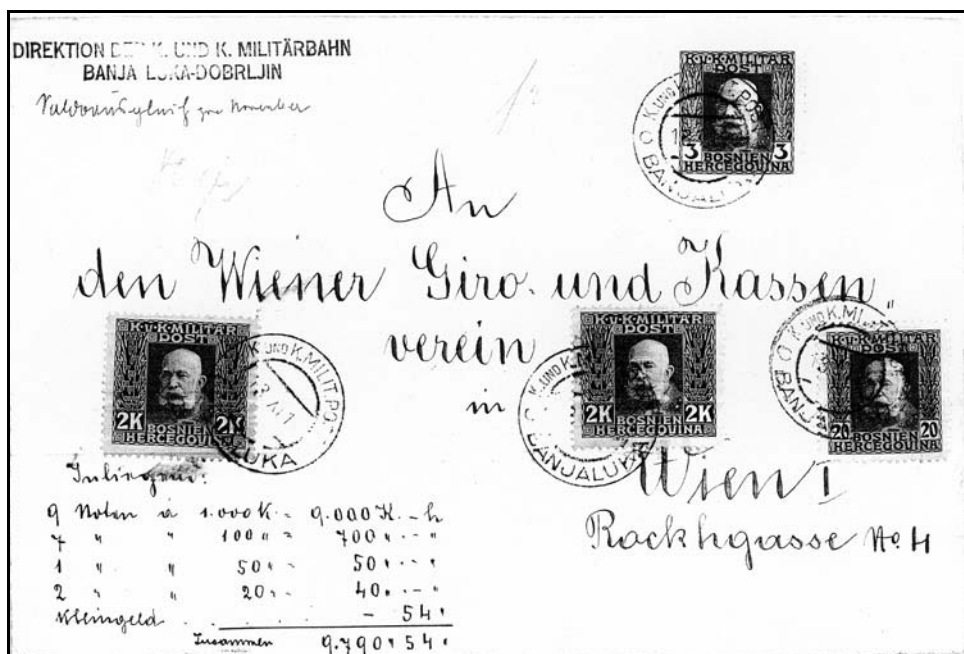 DIREKTION DER K. UND K. MILITÄRBAHN
BANJA LUKA-DOBRLJIN
Saldoausgleich pro November
K.u.K.MILITÄR
POST
3 3
BOSNIEN
HERCEGOVINA
K. UND K. MILIT. POST
BANJALUKA
An
den Wiener Giro- und Kassen„
verein
in
Wien I
Rockhgasse No. 4
K.u.K.MILITÄR
POST
2K 2K
BOSNIEN
HERCEGOVINA
K. UND K. MILIT. PO
LUKA
K.u.K.MILITÄR
POST
2K 2K
BOSNIEN
HERCEGOVINA
K. UND K. M
BANJALUKA
K.u.K.MILITÄR
POST
20 20
BOSNIEN
HERCEGOVINA
K. UND K. MI
BANJA
Inliegend:
9 Noten à 1.000 K. = 9.000 K. - h
7 " " 100 " = 700 " - - "
1 " " 50 " - 50 " - - "
2 " " 20 " - 40 " - - "
Kleingeld . . . . . - 54 "
Zusammen 9.790 " 54 "